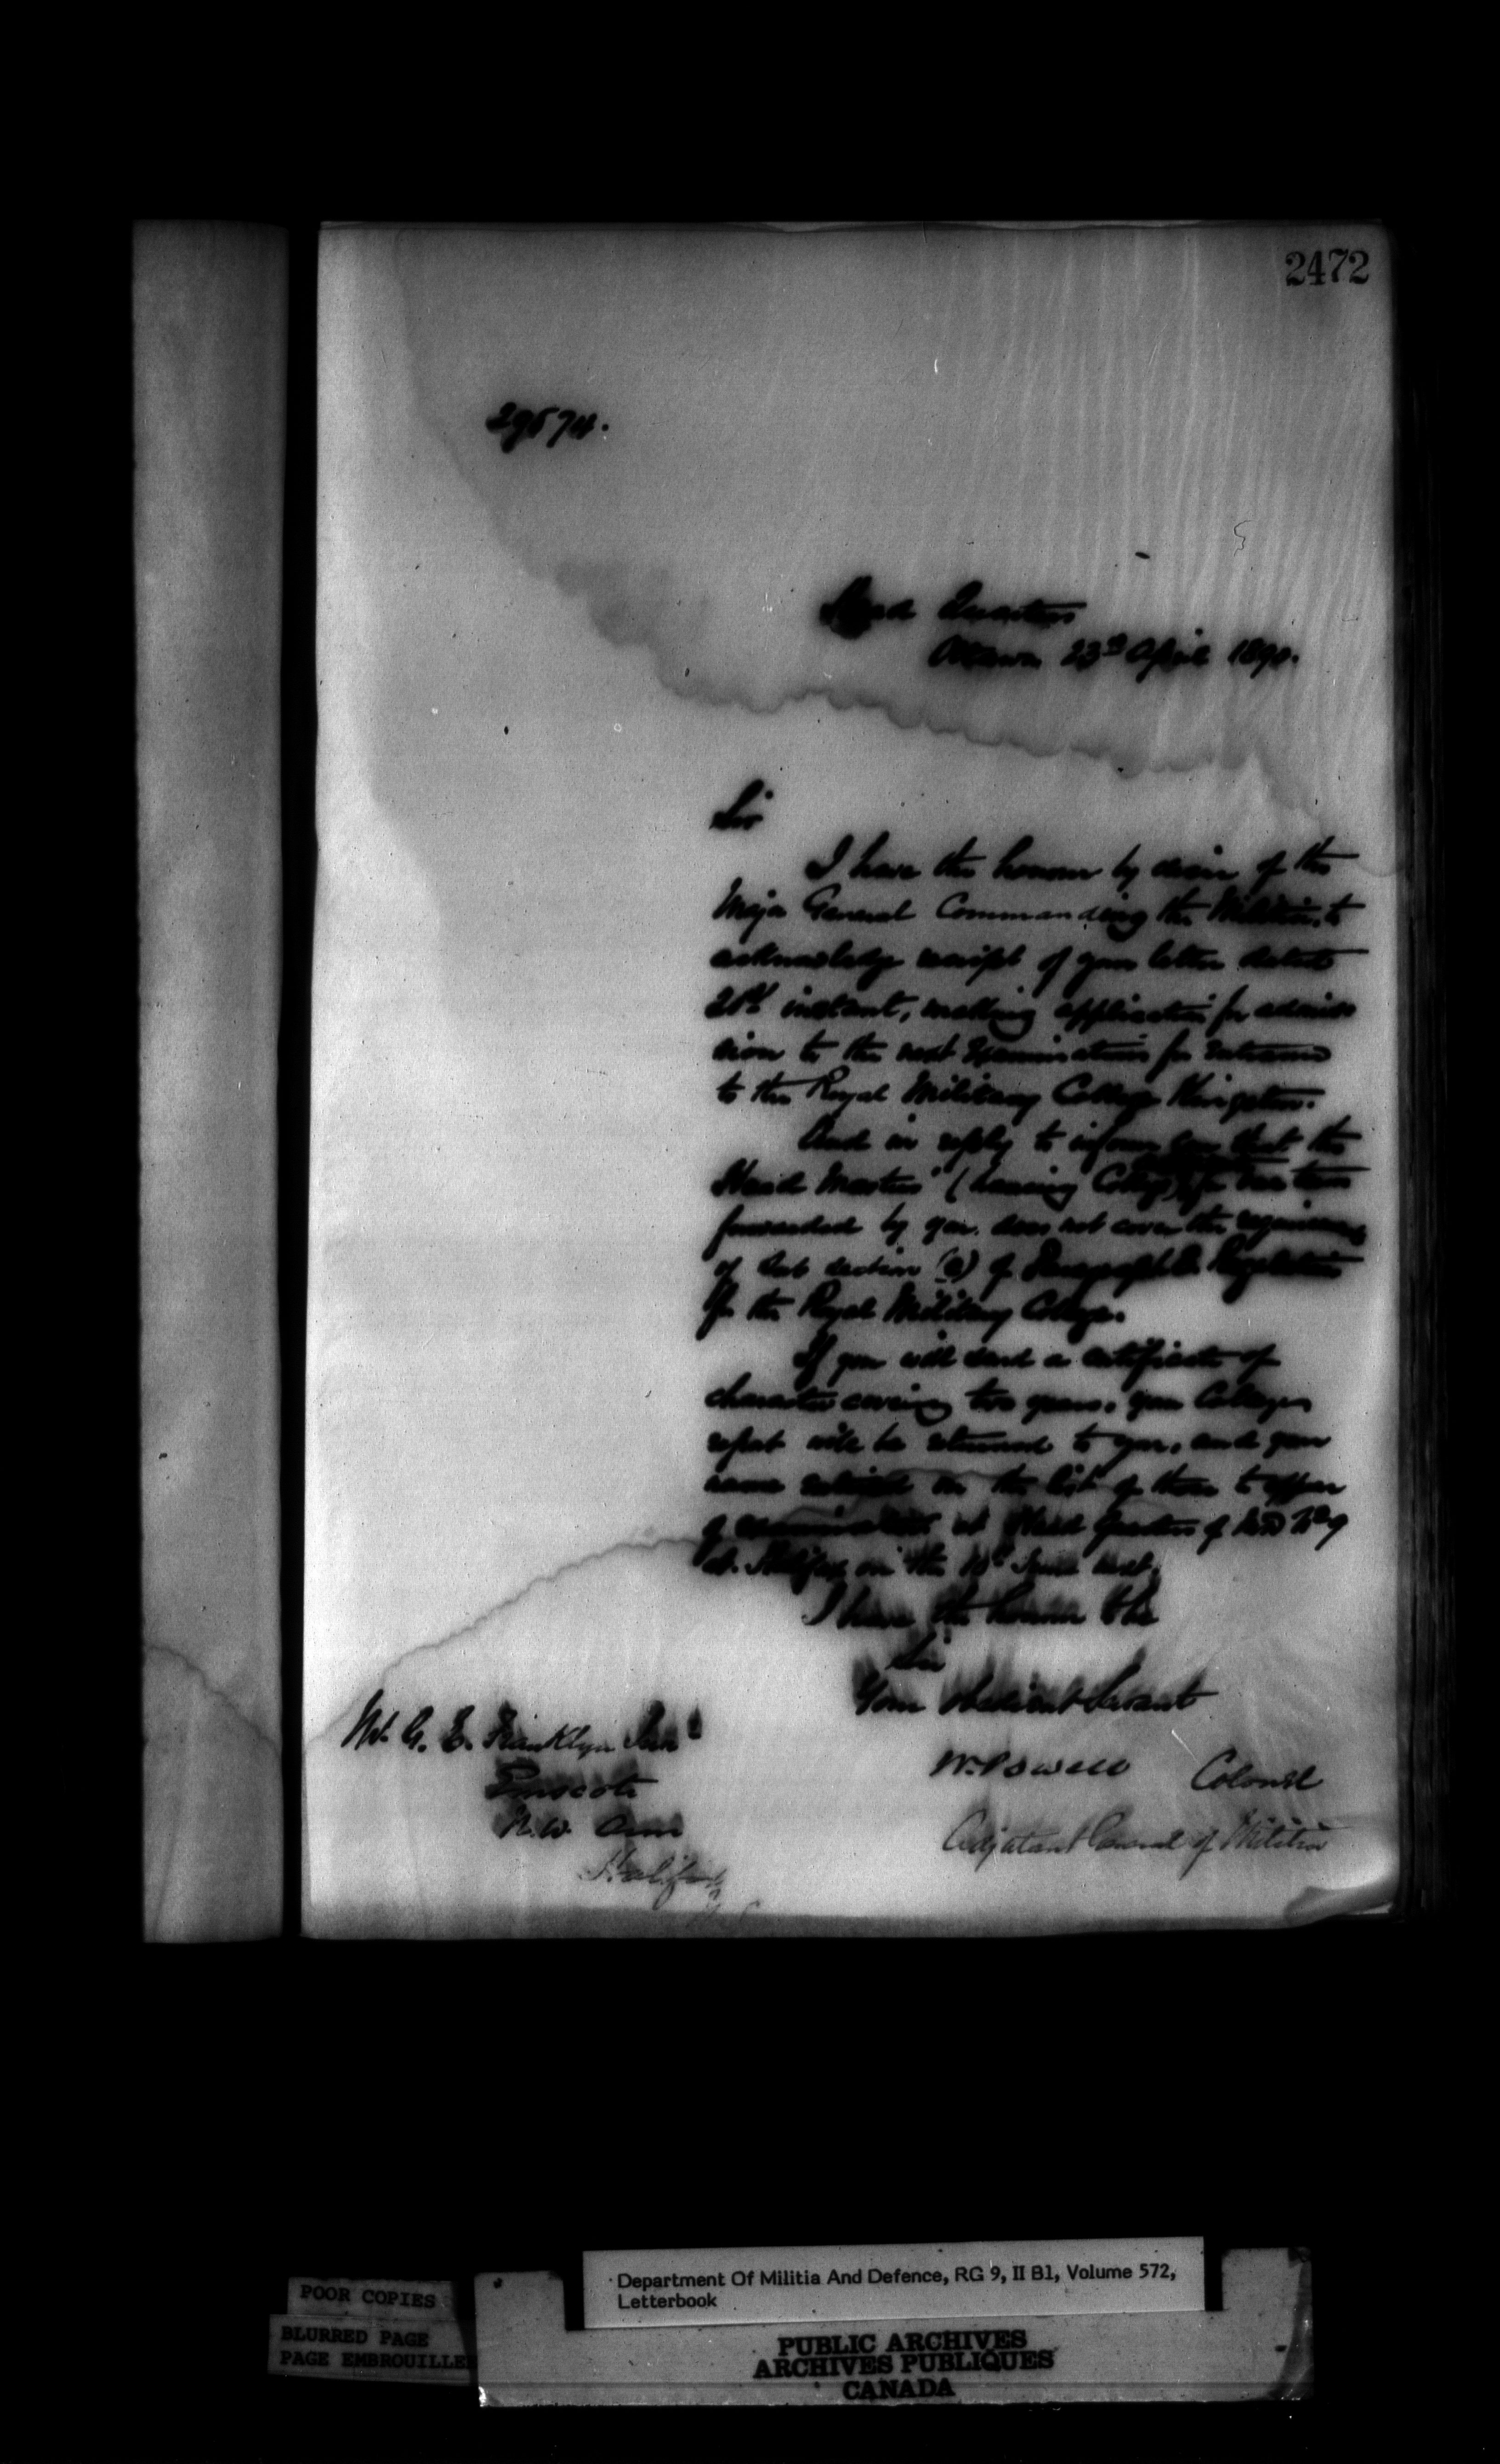 2472
29574.
Head Quarters
Ottawa 23rd April 1890.
Sir
I have the honour by desire of the
Major General Commanding the Militia, to
acknowledge receipt of your letter dated
instant, making application for admis
sion to the next Examination for entrance
to the Royal Military College Kingston.
And in reply to inform you that the
Head Masters' (leaving College) for
forwarded by you does not cover the
of Sub section (e) of Paragraph Regulations
for the Royal Military College.
If you will send a certificate of
character covering two years, your College
report will be returned to you, and your
name entered on the list of those to appear
at Head Quarters of M.D. No 9
at Halifax on the 10th June next.
I have the honour to be
Sir
Your obedient Servant
W. Powell Colonel
Adjutant General of Militia
Mr. G. E. Franklyn Junr
N.W. Arm
Halifax
N.S.
Department Of Militia And Defence, RG 9, II B1, Volume 572,
Letterbook
POOR COPIES
BLURRED PAGE
PAGE EMBROUILLEE
PUBLIC ARCHIVES
ARCHIVES PUBLIQUES
CANADA